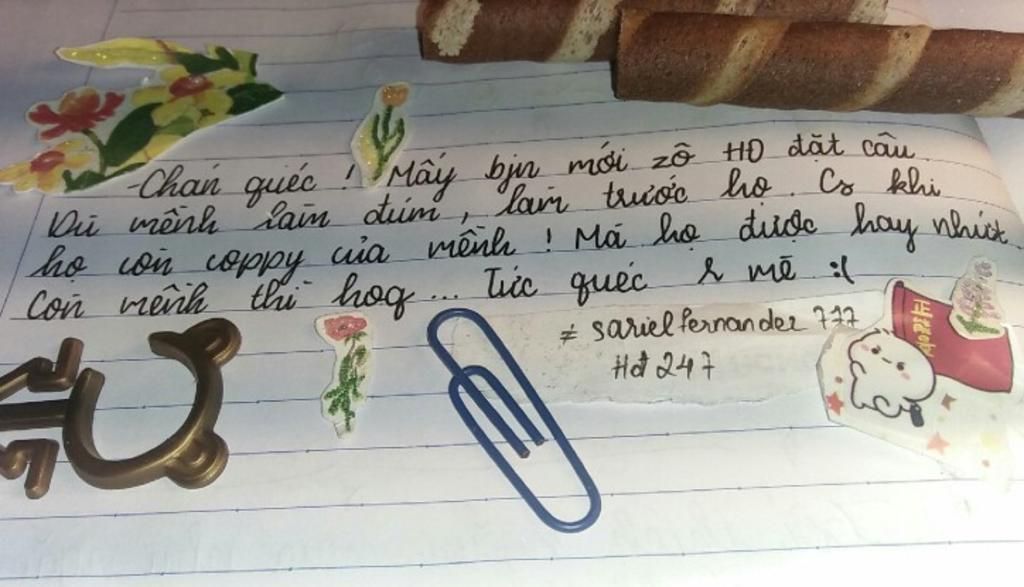 -Chán quéc ! Mấy bjn mới zô HĐ đặt câu.
Dù mềnh làm đúm, làm trước họ. Cs khi
họ còn coppy của mềnh ! Mà họ được hay nhứt
Còn mềnh thì hog... Tức quéc r mè :(
≠ sarielfernandez 777
Hđ 247